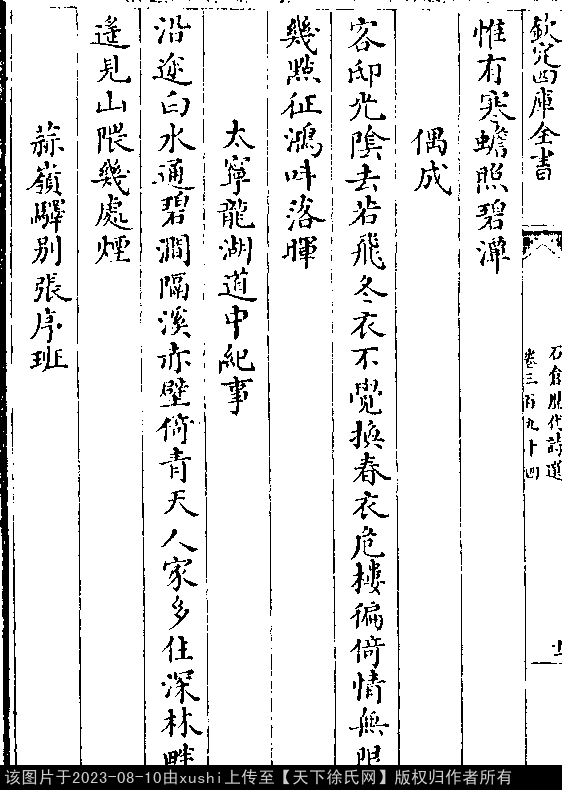 欽定四庫全書
石倉歷代詩選
卷三百九十四
惟有寒蟾照碧潭
偶成
客邸光陰去若飛冬衣不覺換春衣危樓徧倚情無限
幾點征鴻叫落暉
太寧龍湖道中紀事
沿途白水通碧澗隔溪赤壁倚青天人家多住深林畔
遙見山隈幾處煙
蒜嶺驛别張序班
该图片于2023-08-10由xushi上传至【天下徐氏网】版权归作者所有